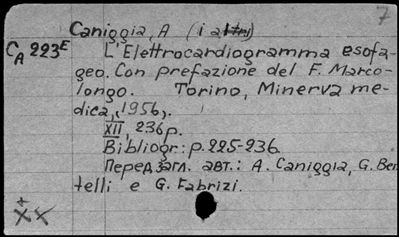 7
Caniggia, A (i altri)
CA 223E L'Elettrocardiogramma esofa-
geo. Con prefazione del F. Marco-
longo. Torino, Minerva me-
dica, (1956).
XII, 236p.
Bibliogr: p. 225-236.
Перед загл. авт.: A. Caniggia, G. Ben
telli e G. Fabrizi.
+
XX